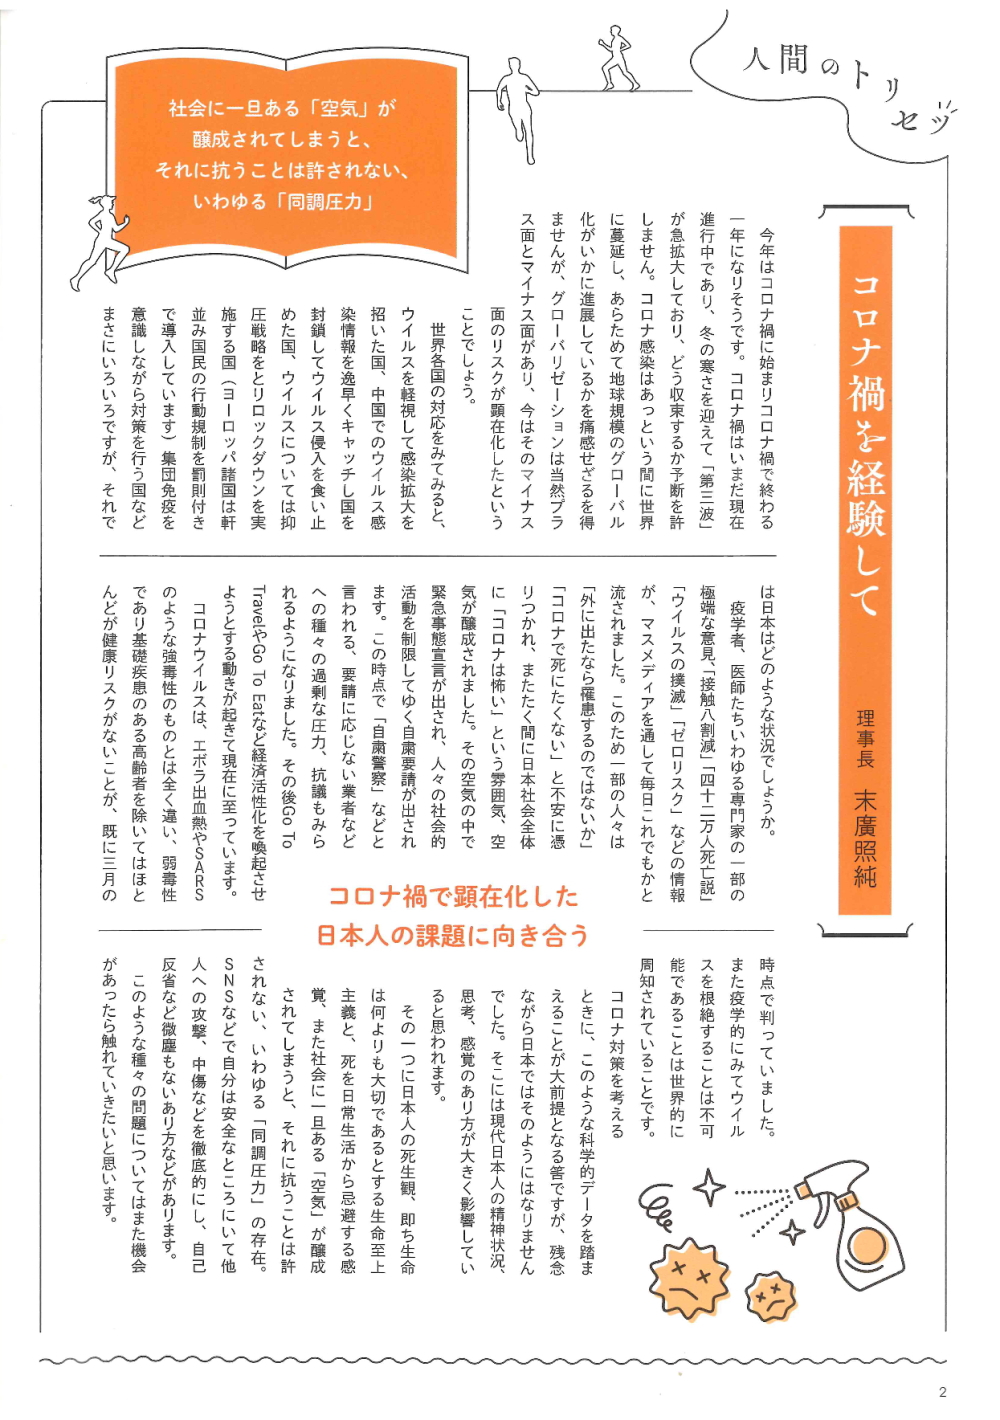 人間のトリセツ
社会に一旦ある「空気」が
醸成されてしまうと、
それに抗うことは許されない、
いわゆる「同調圧力」
コロナ禍を経験して
理事長　末廣照純
今年はコロナ禍に始まりコロナ禍で終わる
一年になりそうです。コロナ禍はいまだ現在
進行中であり、冬の寒さを迎えて「第三波」
が急拡大しており、どう収束するか予断を許
しません。コロナ感染はあっという間に世界
に蔓延し、あらためて地球規模のグローバル
化がいかに進展しているかを痛感せざるを得
ませんが、グローバリゼーションは当然プラ
ス面とマイナス面があり、今はそのマイナス
面のリスクが顕在化したという
ことでしょう。
世界各国の対応をみてみると、
ウイルスを軽視して感染拡大を
招いた国、中国でのウイルス感
染情報を逸早くキャッチし国を
封鎖してウイルス侵入を食い止
めた国、ウイルスについては抑
圧戦略をとりロックダウンを実
施する国（ヨーロッパ諸国は軒
並み国民の行動規制を罰則付き
で導入しています）集団免疫を
意識しながら対策を行う国など
まさにいろいろですが、それで
は日本はどのような状況でしょうか。
疫学者、医師たちいわゆる専門家の一部の
極端な意見、「接触八割減」「四十二万人死亡説」
「ウイルスの撲滅」「ゼロリスク」などの情報
が、マスメディアを通して毎日これでもかと
流されました。このため一部の人々は
「外に出たなら罹患するのではないか」
「コロナで死にたくない」と不安に憑
りつかれ、またたく間に日本社会全体
に「コロナは怖い」という雰囲気、空
気が醸成されました。その空気の中で
緊急事態宣言が出され、人々の社会的
活動を制限してゆく自粛要請が出され
ます。この時点で「自粛警察」などと
言われる、要請に応じない業者など
への種々の過剰な圧力、抗議もみら
れるようになりました。その後Go To
TravelやGo To Eatなど経済活性化を喚起させ
ようとする動きが起きて現在に至っています。
コロナウイルスは、エボラ出血熱やSARS
のような強毒性のものとは全く違い、弱毒性
であり基礎疾患のある高齢者を除いてはほと
んどが健康リスクがないことが、既に三月の
コロナ禍で顕在化した
日本人の課題に向き合う
時点で判っていました。
また疫学的にみてウイル
スを根絶することは不可
能であることは世界的に
周知されていることです。
コロナ対策を考える
ときに、このような科学的データを踏ま
えることが大前提となる答ですが、残念
ながら日本ではそのようにはなりません
でした。そこには現代日本人の精神状況、
思考、感覚のあり方が大きく影響してい
ると思われます。
その一つに日本人の死生観、即ち生命
は何よりも大切であるとする生命至上
主義と、死を日常生活から忌避する感
覚、また社会に一旦ある「空気」が醸成
されてしまうと、それに抗うことは許
されない、いわゆる「同調圧力」の存在。
SNSなどで自分は安全なところにいて他
人への攻撃、中傷などを徹底的にし、自己
反省など微塵もないあり方などがあります。
このような種々の問題についてはまた機会
があったら触れていきたいと思います。
2